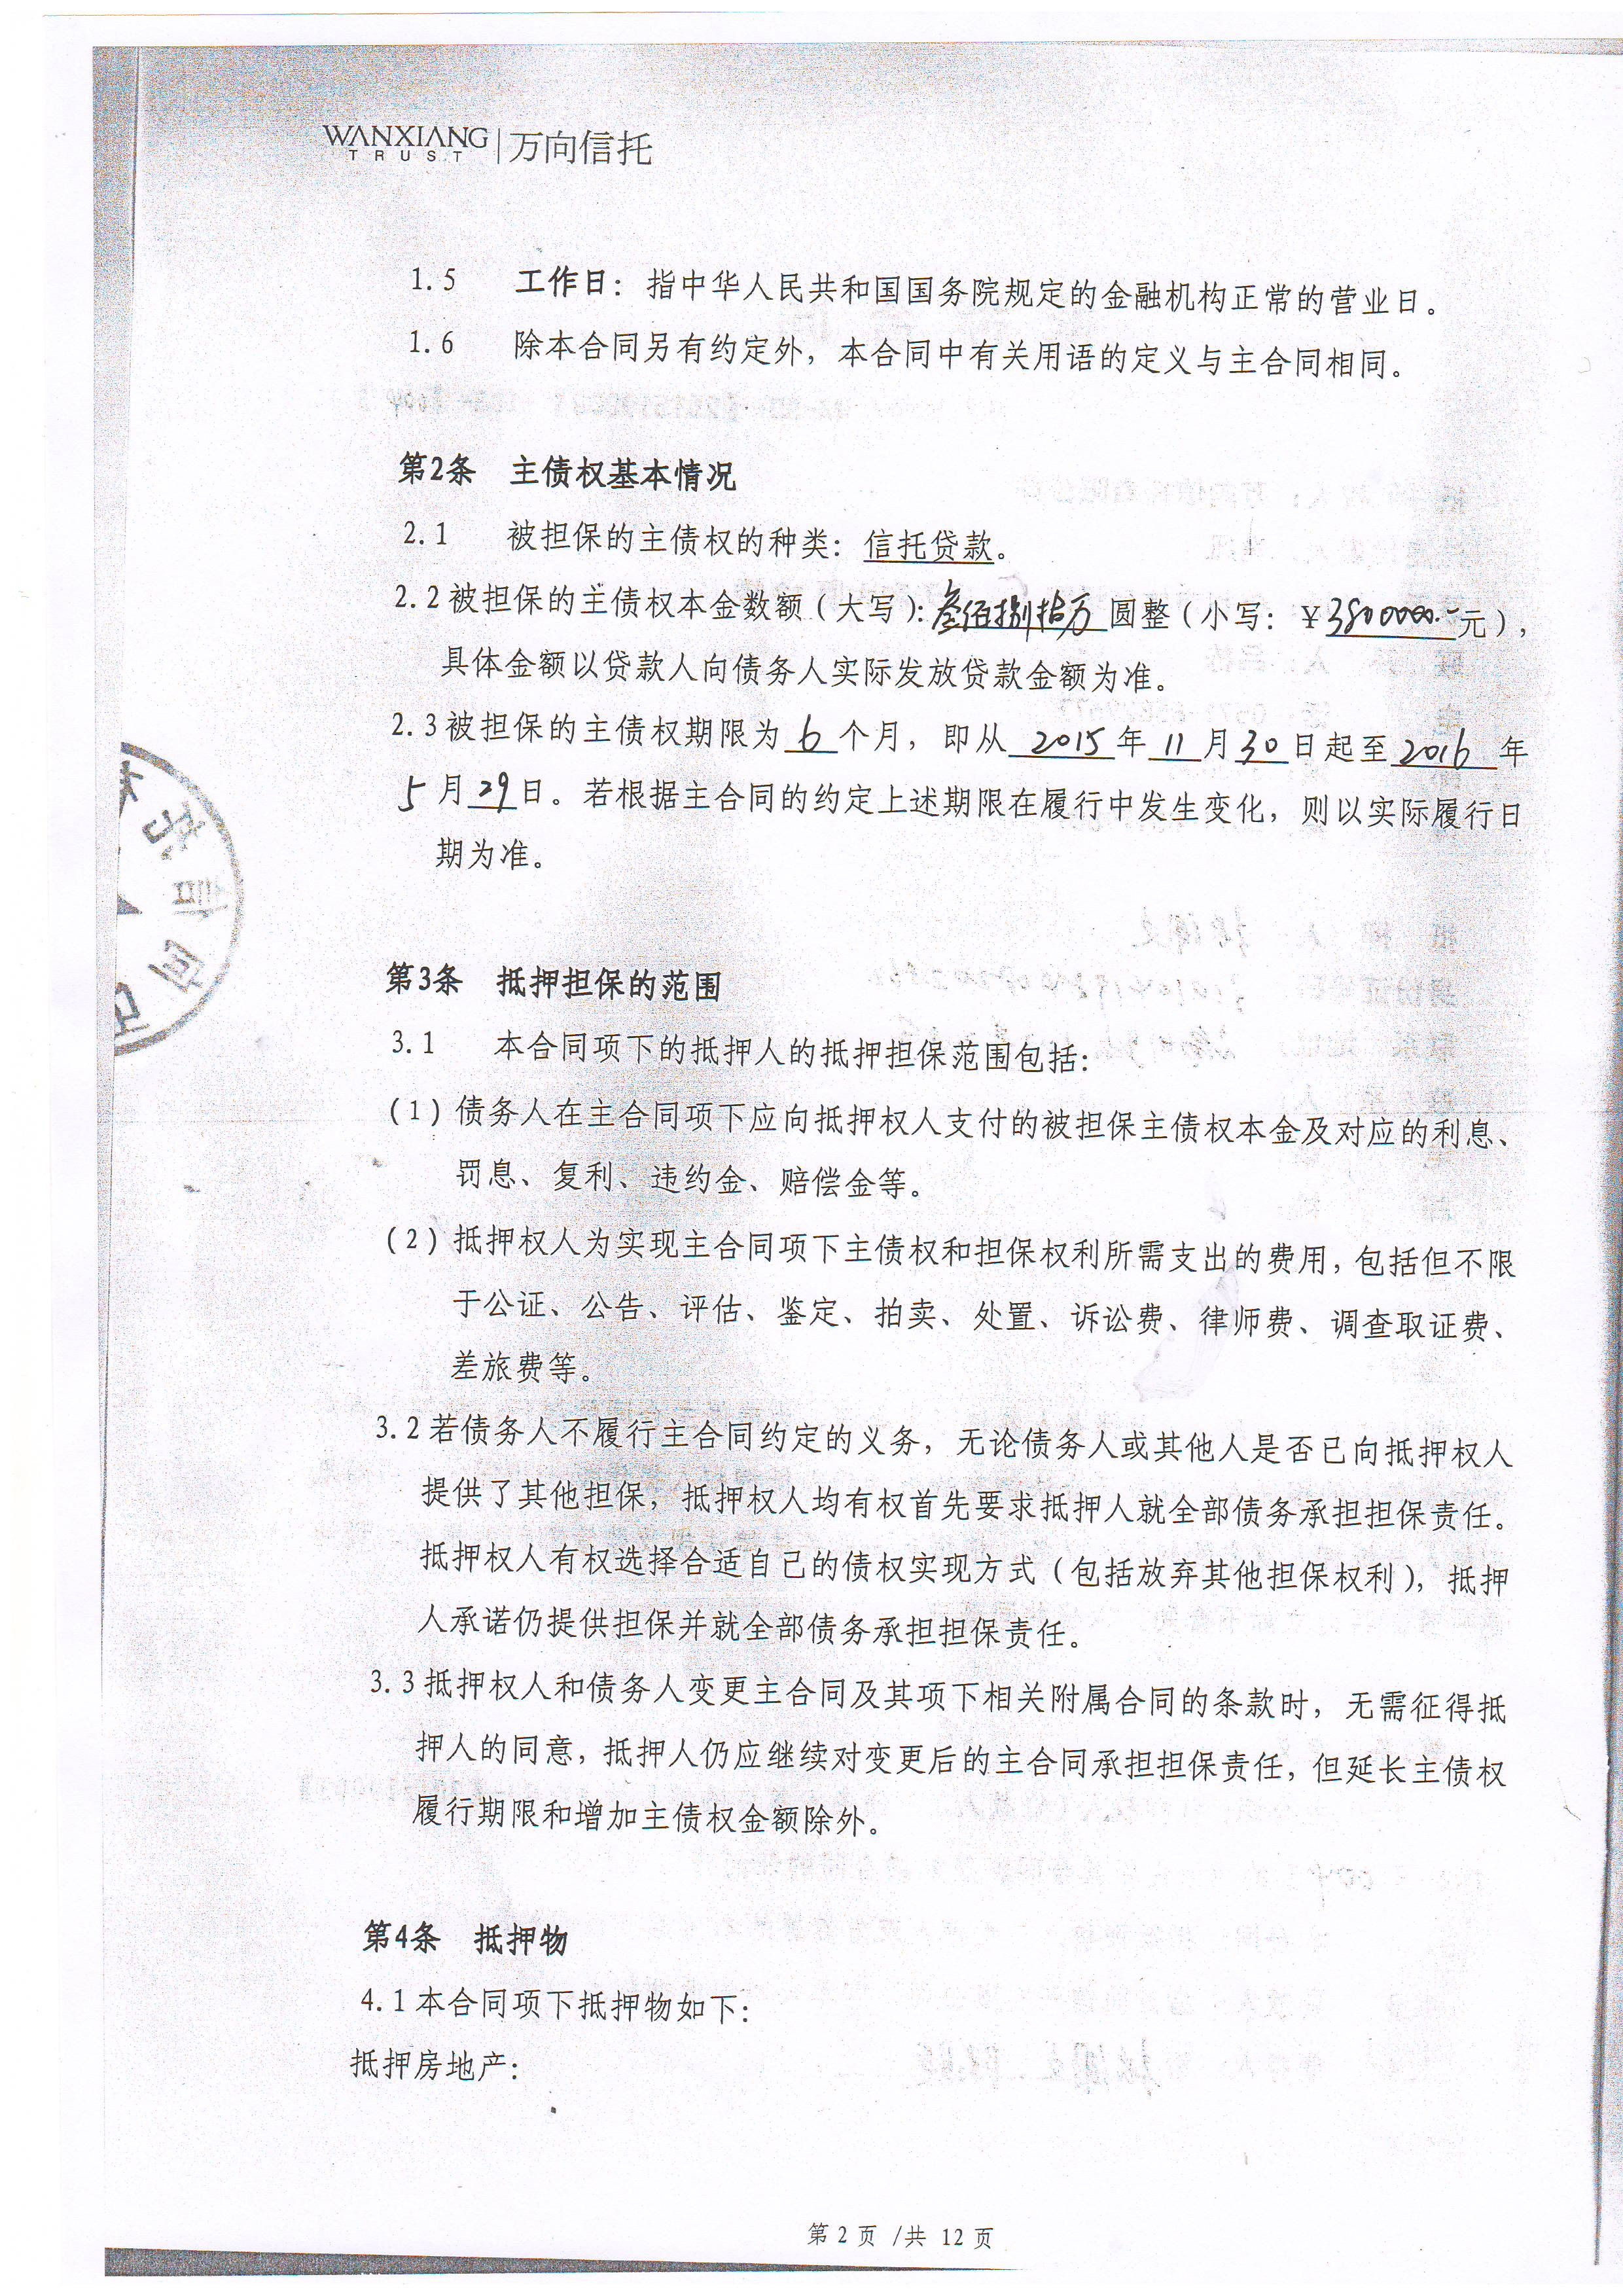 WANXIANG TRUST | 万向信托
1.5 工作日：指中华人民共和国国务院规定的金融机构正常的营业日。
1.6 除本合同另有约定外，本合同中有关用语的定义与主合同相同。
第2条 主债权基本情况
2.1 被担保的主债权的种类：信托贷款。
2.2被担保的主债权本金数额（大写）：叁佰捌拾万圆整（小写：￥3800000.-元），
具体金额以贷款人向债务人实际发放贷款金额为准。
2.3被担保的主债权期限为6个月，即从2015年11月30日起至2016年
5月29日。若根据主合同的约定上述期限在履行中发生变化，则以实际履行日
期为准。
第3条 抵押担保的范围
3.1 本合同项下的抵押人的抵押担保范围包括：
（1）债务人在主合同项下应向抵押权人支付的被担保主债权本金及对应的利息、
罚息、复利、违约金、赔偿金等。
（2）抵押权人为实现主合同项下主债权和担保权利所需支出的费用，包括但不限
于公证、公告、评估、鉴定、拍卖、处置、诉讼费、律师费、调查取证费、
差旅费等。
3.2若债务人不履行主合同约定的义务，无论债务人或其他人是否已向抵押权人
提供了其他担保，抵押权人均有权首先要求抵押人就全部债务承担担保责任。
抵押权人有权选择合适自己的债权实现方式（包括放弃其他担保权利），抵押
人承诺仍提供担保并就全部债务承担担保责任。
3.3抵押权人和债务人变更主合同及其项下相关附属合同的条款时，无需征得抵
押人的同意，抵押人仍应继续对变更后的主合同承担担保责任，但延长主债权
履行期限和增加主债权金额除外。
第4条 抵押物
4.1本合同项下抵押物如下：
抵押房地产：
第 2 页 /共 12 页